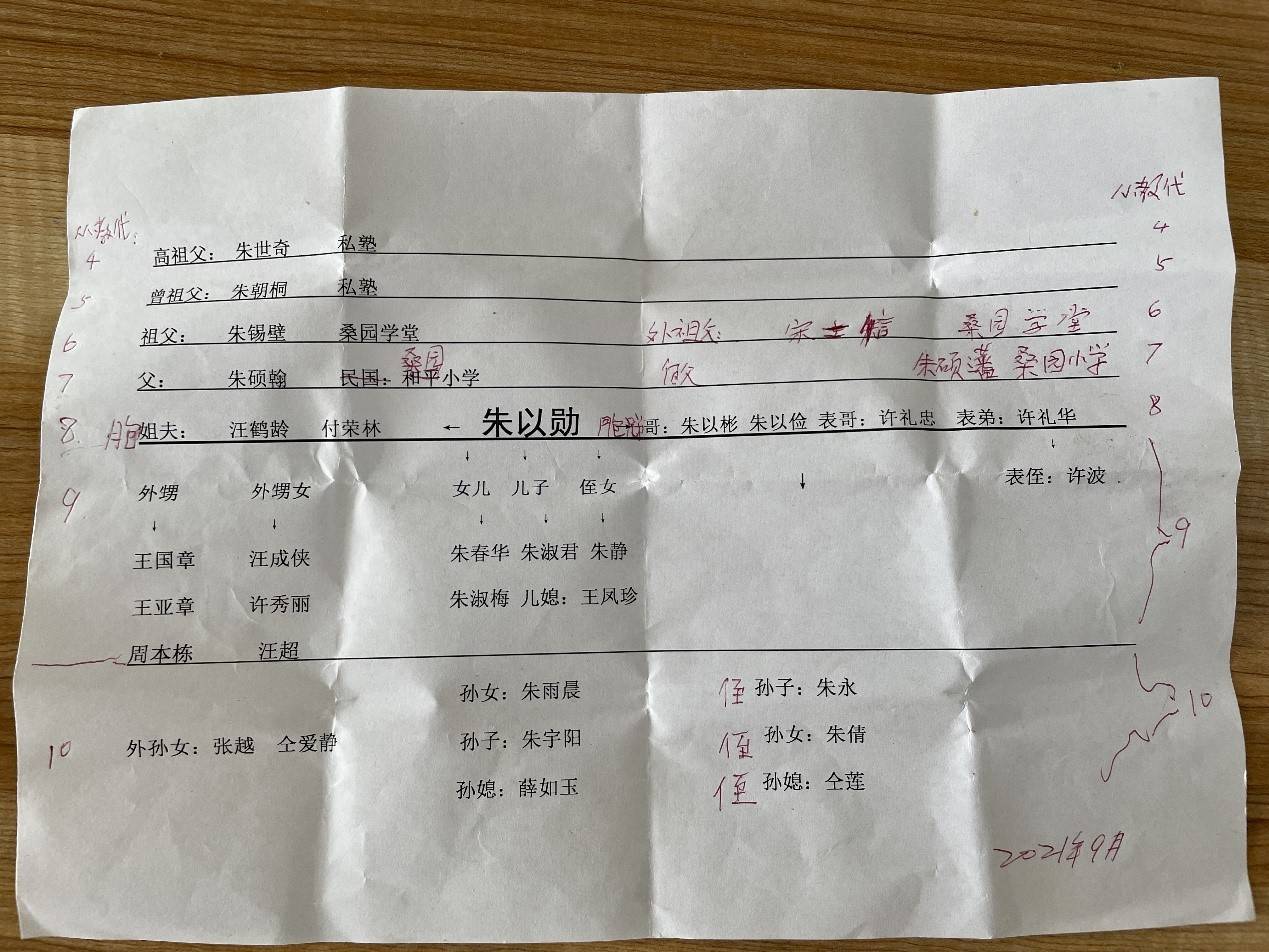 从教代
从教代：
4 高祖父： 朱世奇 私塾 4
5 曾祖父： 朱朝桐 私塾 5
6 祖父： 朱锡壁 桑园学堂 外祖父： 宋士信 桑园学堂 6
桑园
7 父： 朱硕翰 民国：和平小学 伯父 朱硕藩 桑园小学 7
8 胞姐夫： 汪鹤龄 付荣林 ← 朱以勋 胞哥：朱以彬 朱以俭 表哥：许礼忠 表弟：许礼华 8
↓ ↓ ↓ ↓
9 外甥 外甥女 女儿 儿子 侄女 ↓ 表侄：许波
↓ ↓ ↓ ↓ ↓
王国章 汪成侠 朱春华 朱淑君 朱静 9
王亚章 许秀丽 朱淑梅 儿媳：王凤珍
周本栋 汪超
孙女：朱雨晨 侄孙子：朱永 10
10 外孙女：张越 仝爱静 孙子：朱宇阳 侄孙女：朱倩
孙媳：薛如玉 侄孙媳：仝莲
2021年9月